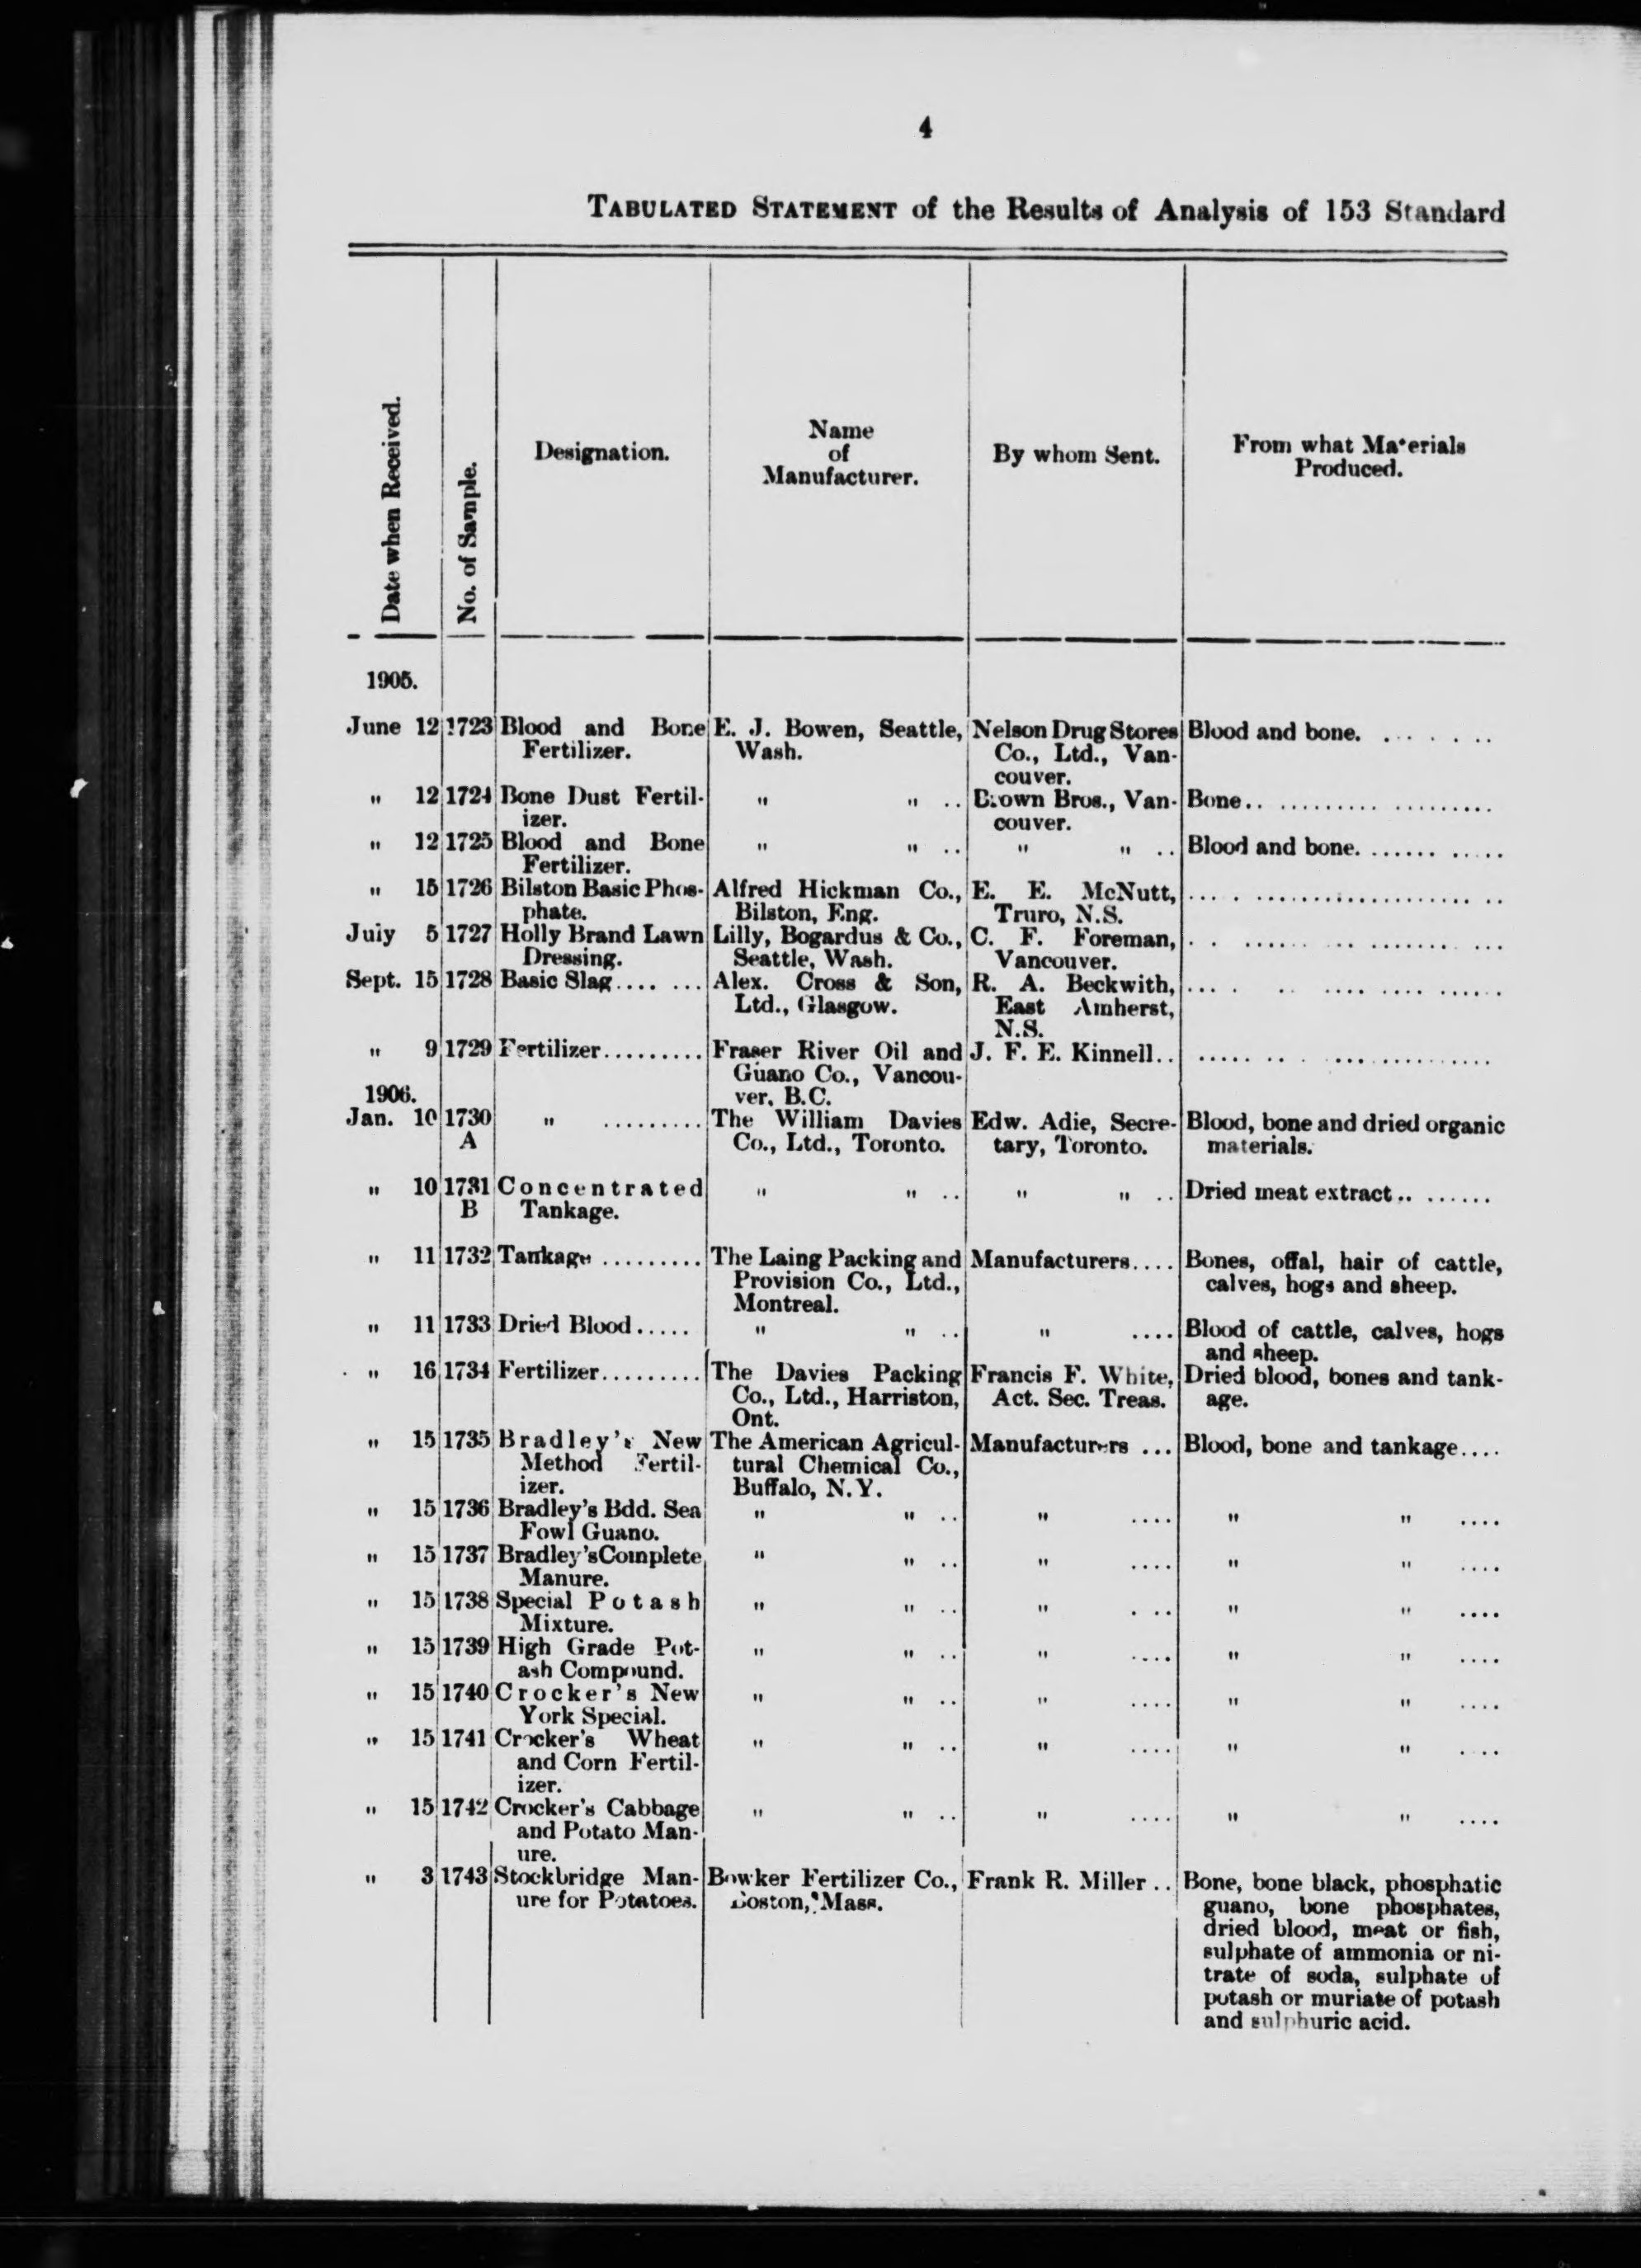 4
TABULATED STATEMENT of the Results of Analysis of 153 Standard
Date when Received.
No. of Sample.
Designation.
Name
of
Manufacturer.
By whom Sent.
From what Materials
Produced.
1905.
June 12 1723 Blood and Bone E. J. Bowen, Seattle, Nelson Drug Stores Blood and bone. . . . . . . .
Fertilizer. Wash. Co., Ltd., Van-
couver.
" 12 1724 Bone Dust Fertil- " " .. Brown Bros., Van- Bone.. .....................
izer. couver.
" 12 1725 Blood and Bone " " .. " " .. Blood and bone. ....... .....
Fertilizer.
" 15 1726 Bilston Basic Phos- Alfred Hickman Co., E. E. McNutt, .... ..........................
phate. Bilston, Eng. Truro, N.S.
July 5 1727 Holly Brand Lawn Lilly, Bogardus & Co., C. F. Foreman, . . ...... .... ........ ...
Dressing. Seattle, Wash. Vancouver.
Sept. 15 1728 Basic Slag.... ... Alex. Cross & Son, R. A. Beckwith, .... .. .... .... .... ......
Ltd., Glasgow. East Amherst,
N.S.
" 9 1729 Fertilizer......... Fraser River Oil and J. F. E. Kinnell.. ...... .. .. ................
Guano Co., Vancou-
1906. ver, B.C.
Jan. 10 1730 " ......... The William Davies Edw. Adie, Secre- Blood, bone and dried organic
A Co., Ltd., Toronto. tary, Toronto. materials.
" 10 1731 Concentrated " " .. " " .. Dried meat extract.. .......
B Tankage.
" 11 1732 Tankage ......... The Laing Packing and Manufacturers.... Bones, offal, hair of cattle,
Provision Co., Ltd., calves, hogs and sheep.
Montreal.
" 11 1733 Dried Blood..... " " .. " .... Blood of cattle, calves, hogs
and sheep.
" 16 1734 Fertilizer......... The Davies Packing Francis F. White, Dried blood, bones and tank-
Co., Ltd., Harriston, Act. Sec. Treas. age.
Ont.
" 15 1735 Bradley's New The American Agricul- Manufacturers ... Blood, bone and tankage....
Method Fertil- tural Chemical Co.,
izer. Buffalo, N.Y.
" 15 1736 Bradley's Bdd. Sea " " .. " .... " " ....
Fowl Guano.
" 15 1737 Bradley's Complete " " .. " .... " " ....
Manure.
" 15 1738 Special Potash " " .. " . ... " " ....
Mixture.
" 15 1739 High Grade Pot- " " .. " .... " " ....
ash Compound.
" 15 1740 Crocker's New " " .. " .... " " ....
York Special.
" 15 1741 Crocker's Wheat " " .. " .... " " ....
and Corn Fertil-
izer.
" 15 1742 Crocker's Cabbage " " .. " .... " " ....
and Potato Man-
ure.
" 3 1743 Stockbridge Man- Bowker Fertilizer Co., Frank R. Miller .. Bone, bone black, phosphatic
ure for Potatoes. Boston, Mass. guano, bone phosphates,
dried blood, meat or fish,
sulphate of ammonia or ni-
trate of soda, sulphate of
potash or muriate of potash
and sulphuric acid.